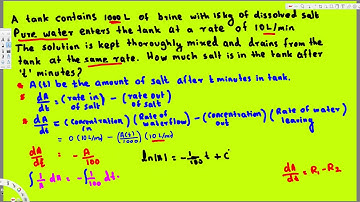 A tank contains 1000 L of brine with 15kg of dissolved salt
Pure water enters the tank at a rate of 10L/min
The solution is kept thoroughly mixed and drains from the
tank at the same rate. How much salt is in the tank after
't' minutes?
* A(t) be the amount of salt after t minutes in tank.
* dA/dt = (rate in of salt) - (rate out of salt)
* dA/dt = (Concentration in) (Rate of waterflow) - (Concentration out) (Rate of water leaving)
= 0 (10 L/min) - A(t)/1000 (10 L/min)
dA/dt = - A/100
∫ 1/A dA = -∫ 1/100 dt.
ln|A| = - 1/100 t + C
dA/dt = R₁ - R₂